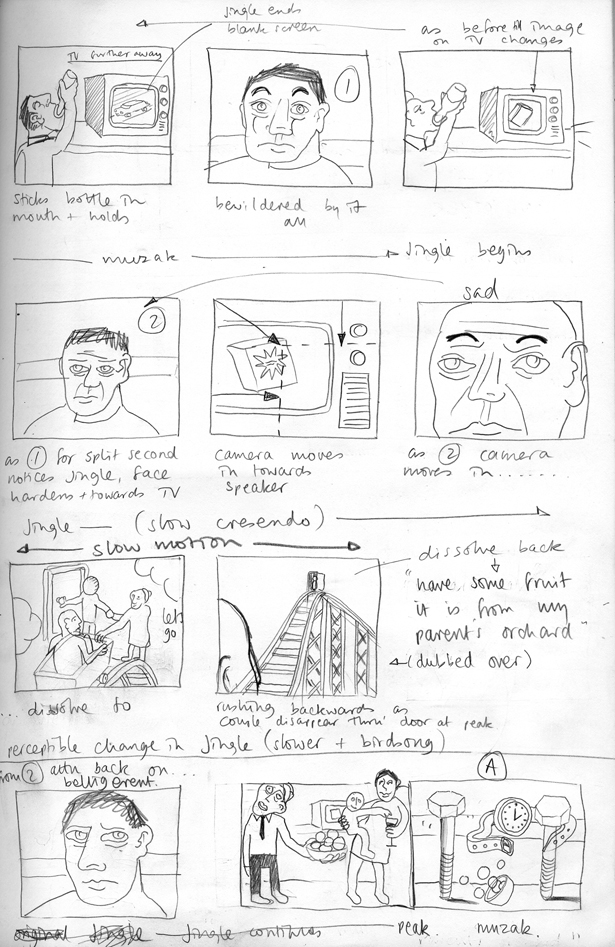 jingle ends
blank screen
as before till image
on TV changes
TV further away
1
sticks bottle in
mouth + holds
bewildered by it
all
muzak
Jingle begins
sad
2
as 1 for split second
notices jingle, face
hardens + towards TV
camera moves
in towards
speaker
as 2 camera
moves in.......
Jingle — (slow cresendo)
slow motion
dissolve back
"have some fruit
it is from my
parent's orchard"
(dubbed over)
lets
go
... dissolve to
rushing backwards as
couple disappear thru' door at peak
perceptible change in Jingle (slower + birdsong)
from 2 attn back on....
belligerent.
A
Jingle continues
peak. muzak.